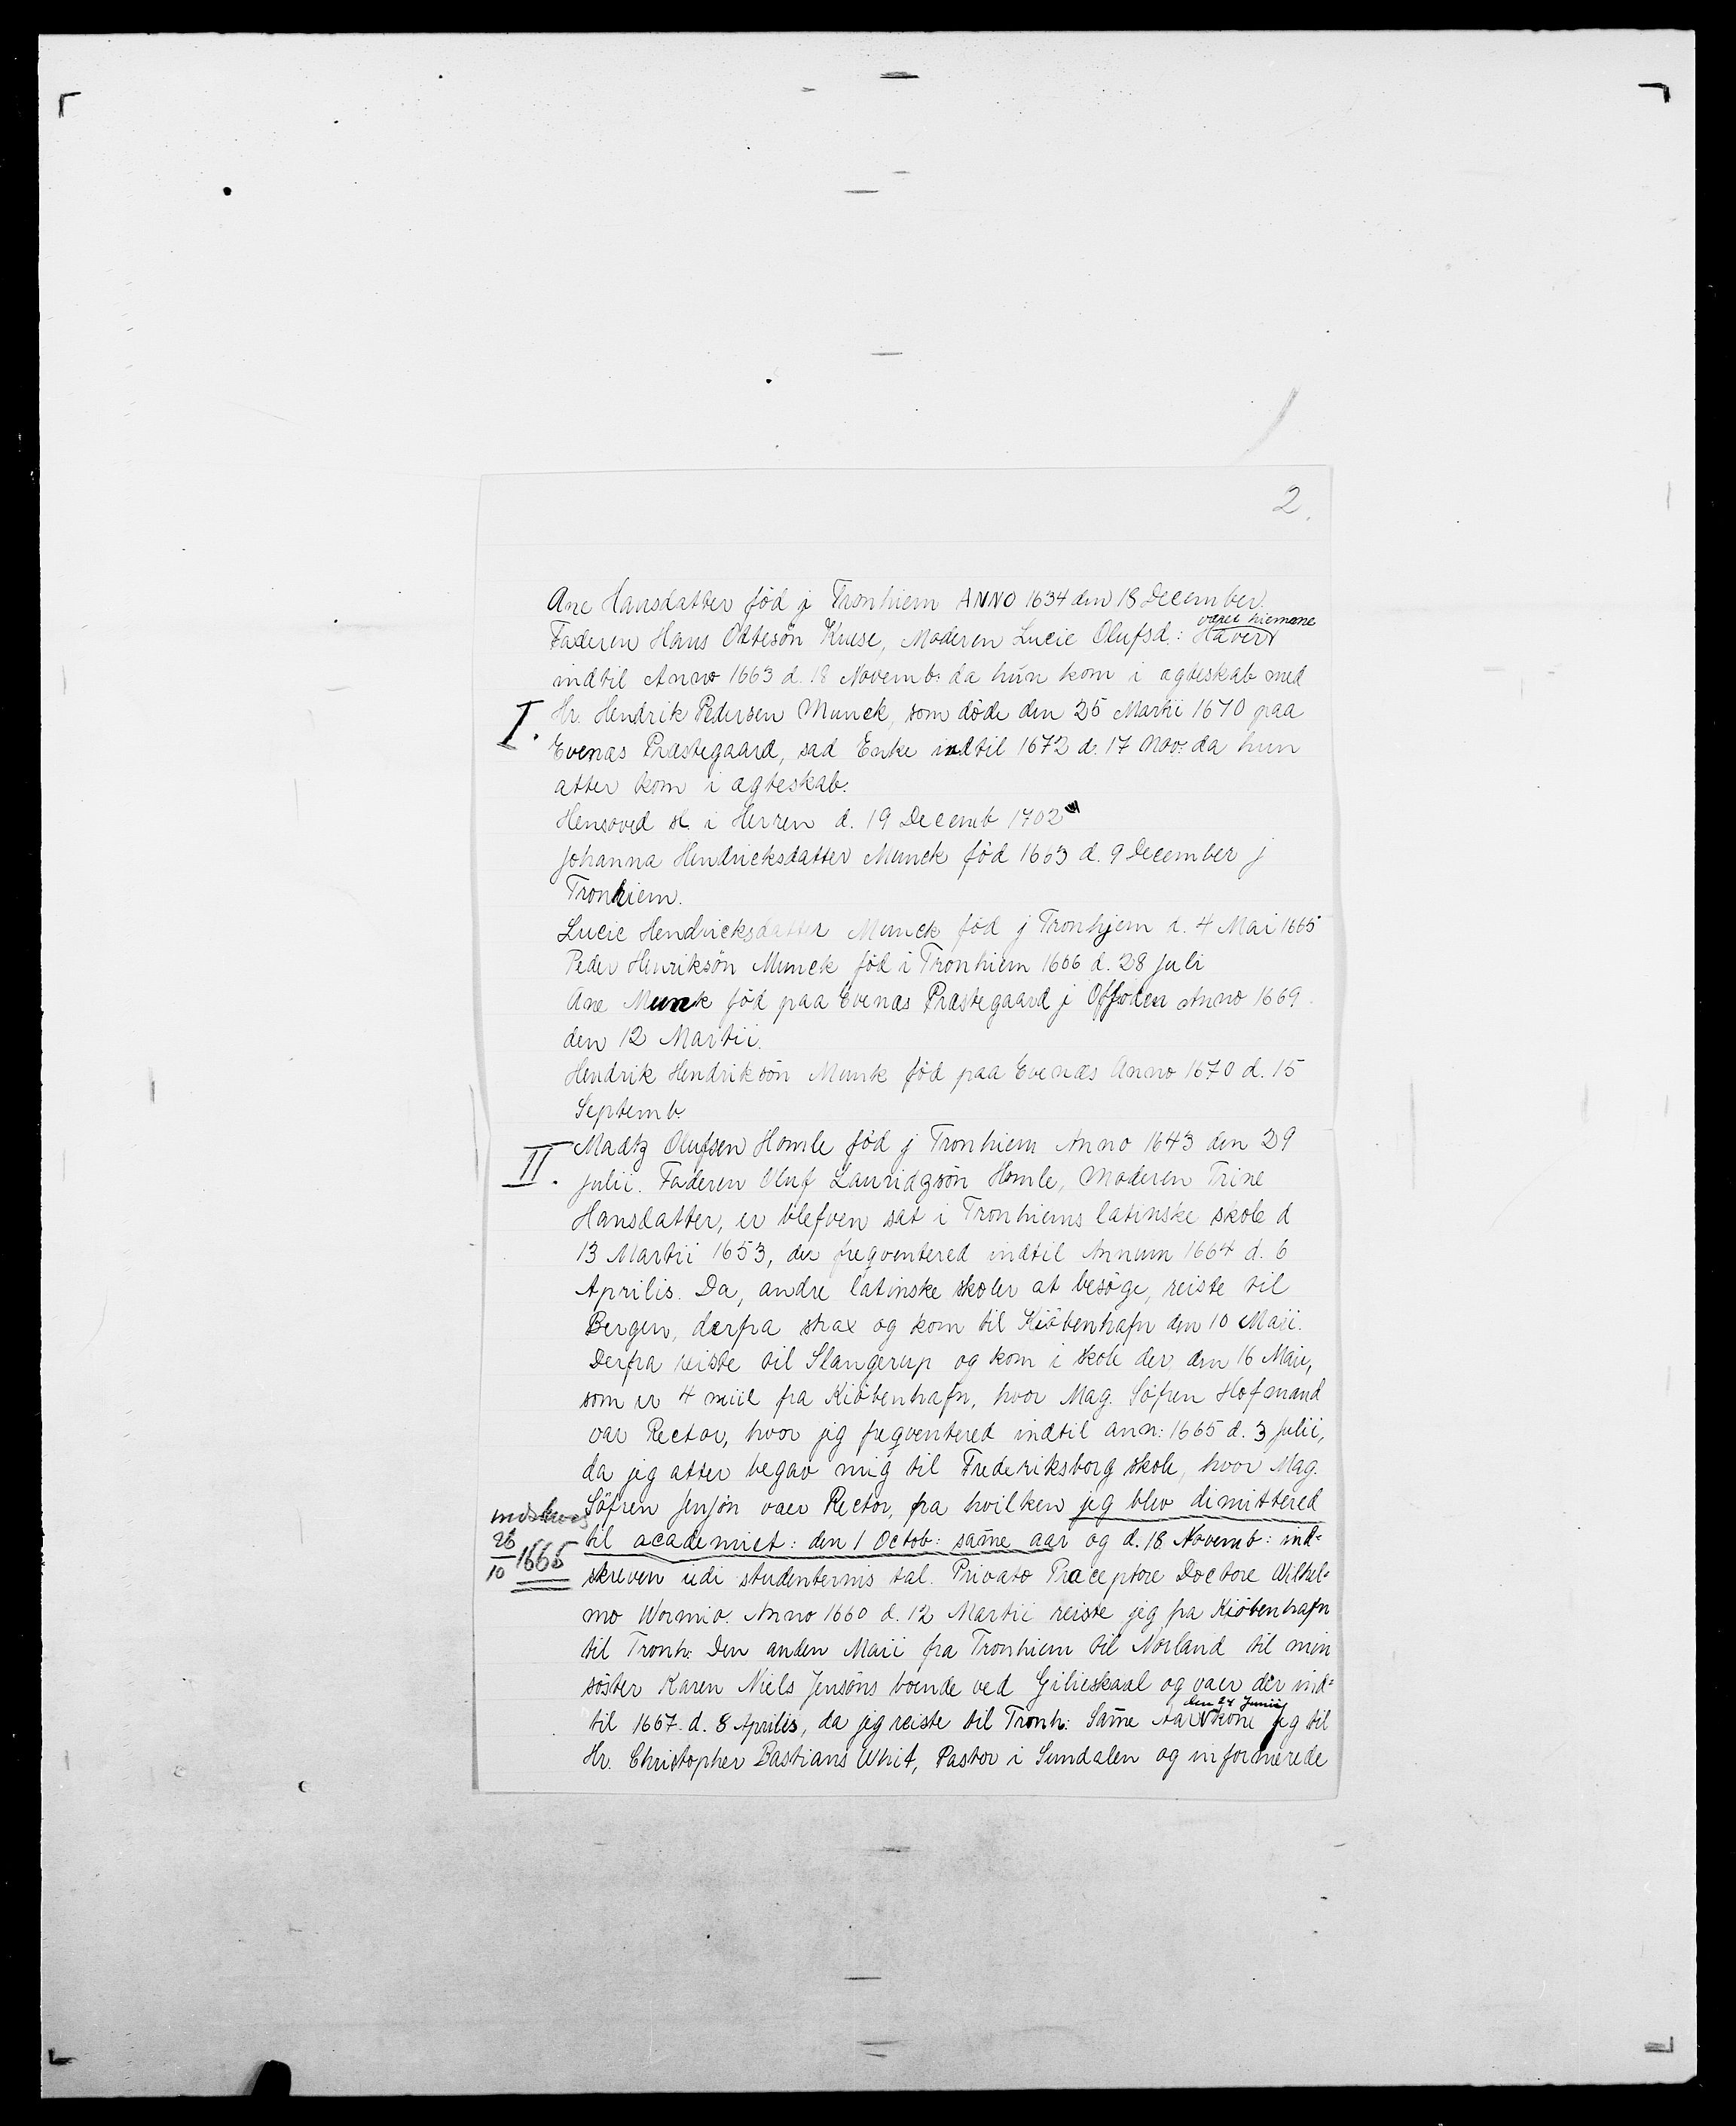 2.
Ane Hansdatter föd j Tronhiem ANNO 1634 den 18 December.
Faderen Hans Ottesön Kruse, Moderen Lucie Olufsd: Haver
været hiemme
indtil Anno 1663 d. 18 Novemb: da hun kom i agteskab med
I. Hr. Hendrik Pedersen Munck, som döde den 25 Martii 1670 paa
Evenas Præstegaard, sad Enke indtil 1672 d. 17 Nov: da hun
atter kom i ægteskab.
Hensoved sl. i Herren d. 19 Decemb 1702
Johanna Hendricksdatter Munck föd 1663 d. 9 December j
Tronhiem.
Lucie Hendricksdatter Munck föd j Tronhjem d. 4 Mai 1665
Peder Henriksön Munck föd i Tronhiem 1666 d. 28 Juli
Ane Munk föd paa Evenæs Præstegaard j Offoden Anno 1669.
den 12 Martii.
Hendrik Hendriksön Munk föd paa Evenæs Anno 1670 d. 15
Septemb.
II. Madtz Olufsen Homle föd j Tronhiem Anno 1643 den 29
Julii. Faderen Oluf Lauridzsön Homle, Moderen Trine
Hansdatter, er blefven sat i Tronhiems latinske skole d
13 Martii 1653, der freqventered indtil Annum 1664 d. 6
Aprilis. Da, andre latinske skoler at besöge, reiste til
Bergen, derfra strax og kom til Kiöbenhafn den 10 Maii.
Derfra reiste til Slangerup og kom i skole der den 16 Maii,
som er 4 miil fra Kiöbenhafn, hvor Mag. Söfren Hofmand
var Rector, hvor jeg freqventered indtil ann: 1665 d. 3 Julii,
da jeg atter begav mig til Frederiksborg skole, hvor Mag.
Söfren Jensön vaer Rector, fra hvilken jeg blev dimittered
indskreves
26/10 1665
til academiet: den 1 Octob: sam̄e aar og d. 18 Novemb: ind-
skreven udi studenternis tal. Privato Præceptore Doctore Wilhel-
mo Wormio. Anno 1660 d. 12 Martii reiste jeg fra Kiöbenhafn
til Tronh: Den anden Maii fra Tronhiem til Norland til min
söster Karen Niels Jensöns boende ved Gilieskaal og vaer der ind-
den 24 Junii
til 1667. d. 8 Aprilis, da jeg reiste til Tronh: Sam̄e Aar kom jeg til
Hr. Christopher Bastians Whit, Pastor i Sundalen og informerede